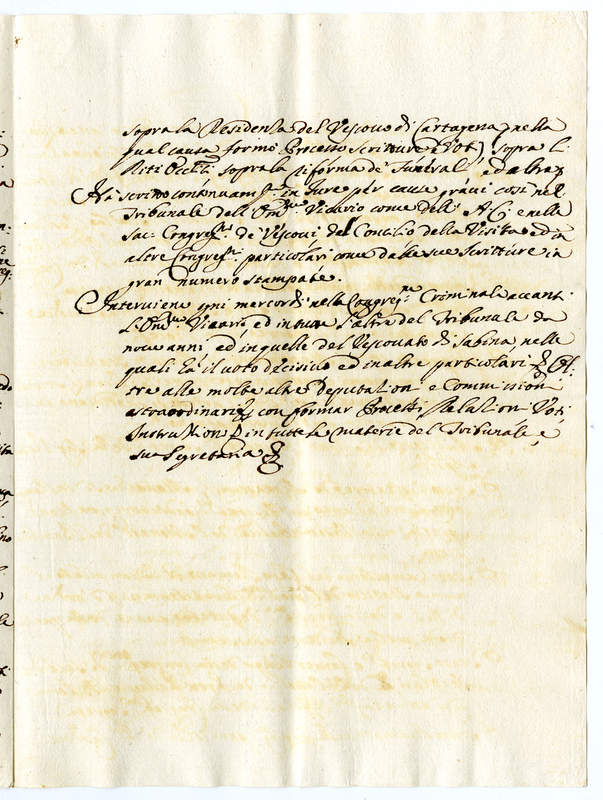 sopra la Residenza del Vescovo di Cartagena, nella
qual causa formò Processo scritture e Voti, sopra li
Riti sopra la riforma de' Funerali, ed altra
Hà scritto continuam.te in Jure per cause gravi così nel
Tribunale dell' Em.mo Vicario come dell' A.C. e nelle
Sac: Congreg.ni de Vescovi del Concilio della Visita ed in
altre Congreg.ni particolari come dalle sue Scritture in
gran numero stampate.
Interviene ogni mercordì nella Congreg.ne Criminale avanti
L'Em.mo Vicario, ed in tutte l'altre del Tribunale da
nove anni, ed in quelle del Vescovato di Sabina, nelle
quali hà il voto decisivo ed in altre particolari Ol-
tre alle molte altre deputationi e Commissioni
straordinarie con formar Processi Relationi Voti
Instruttioni in tutte le materie del Tribunale, e
sua Segretaria